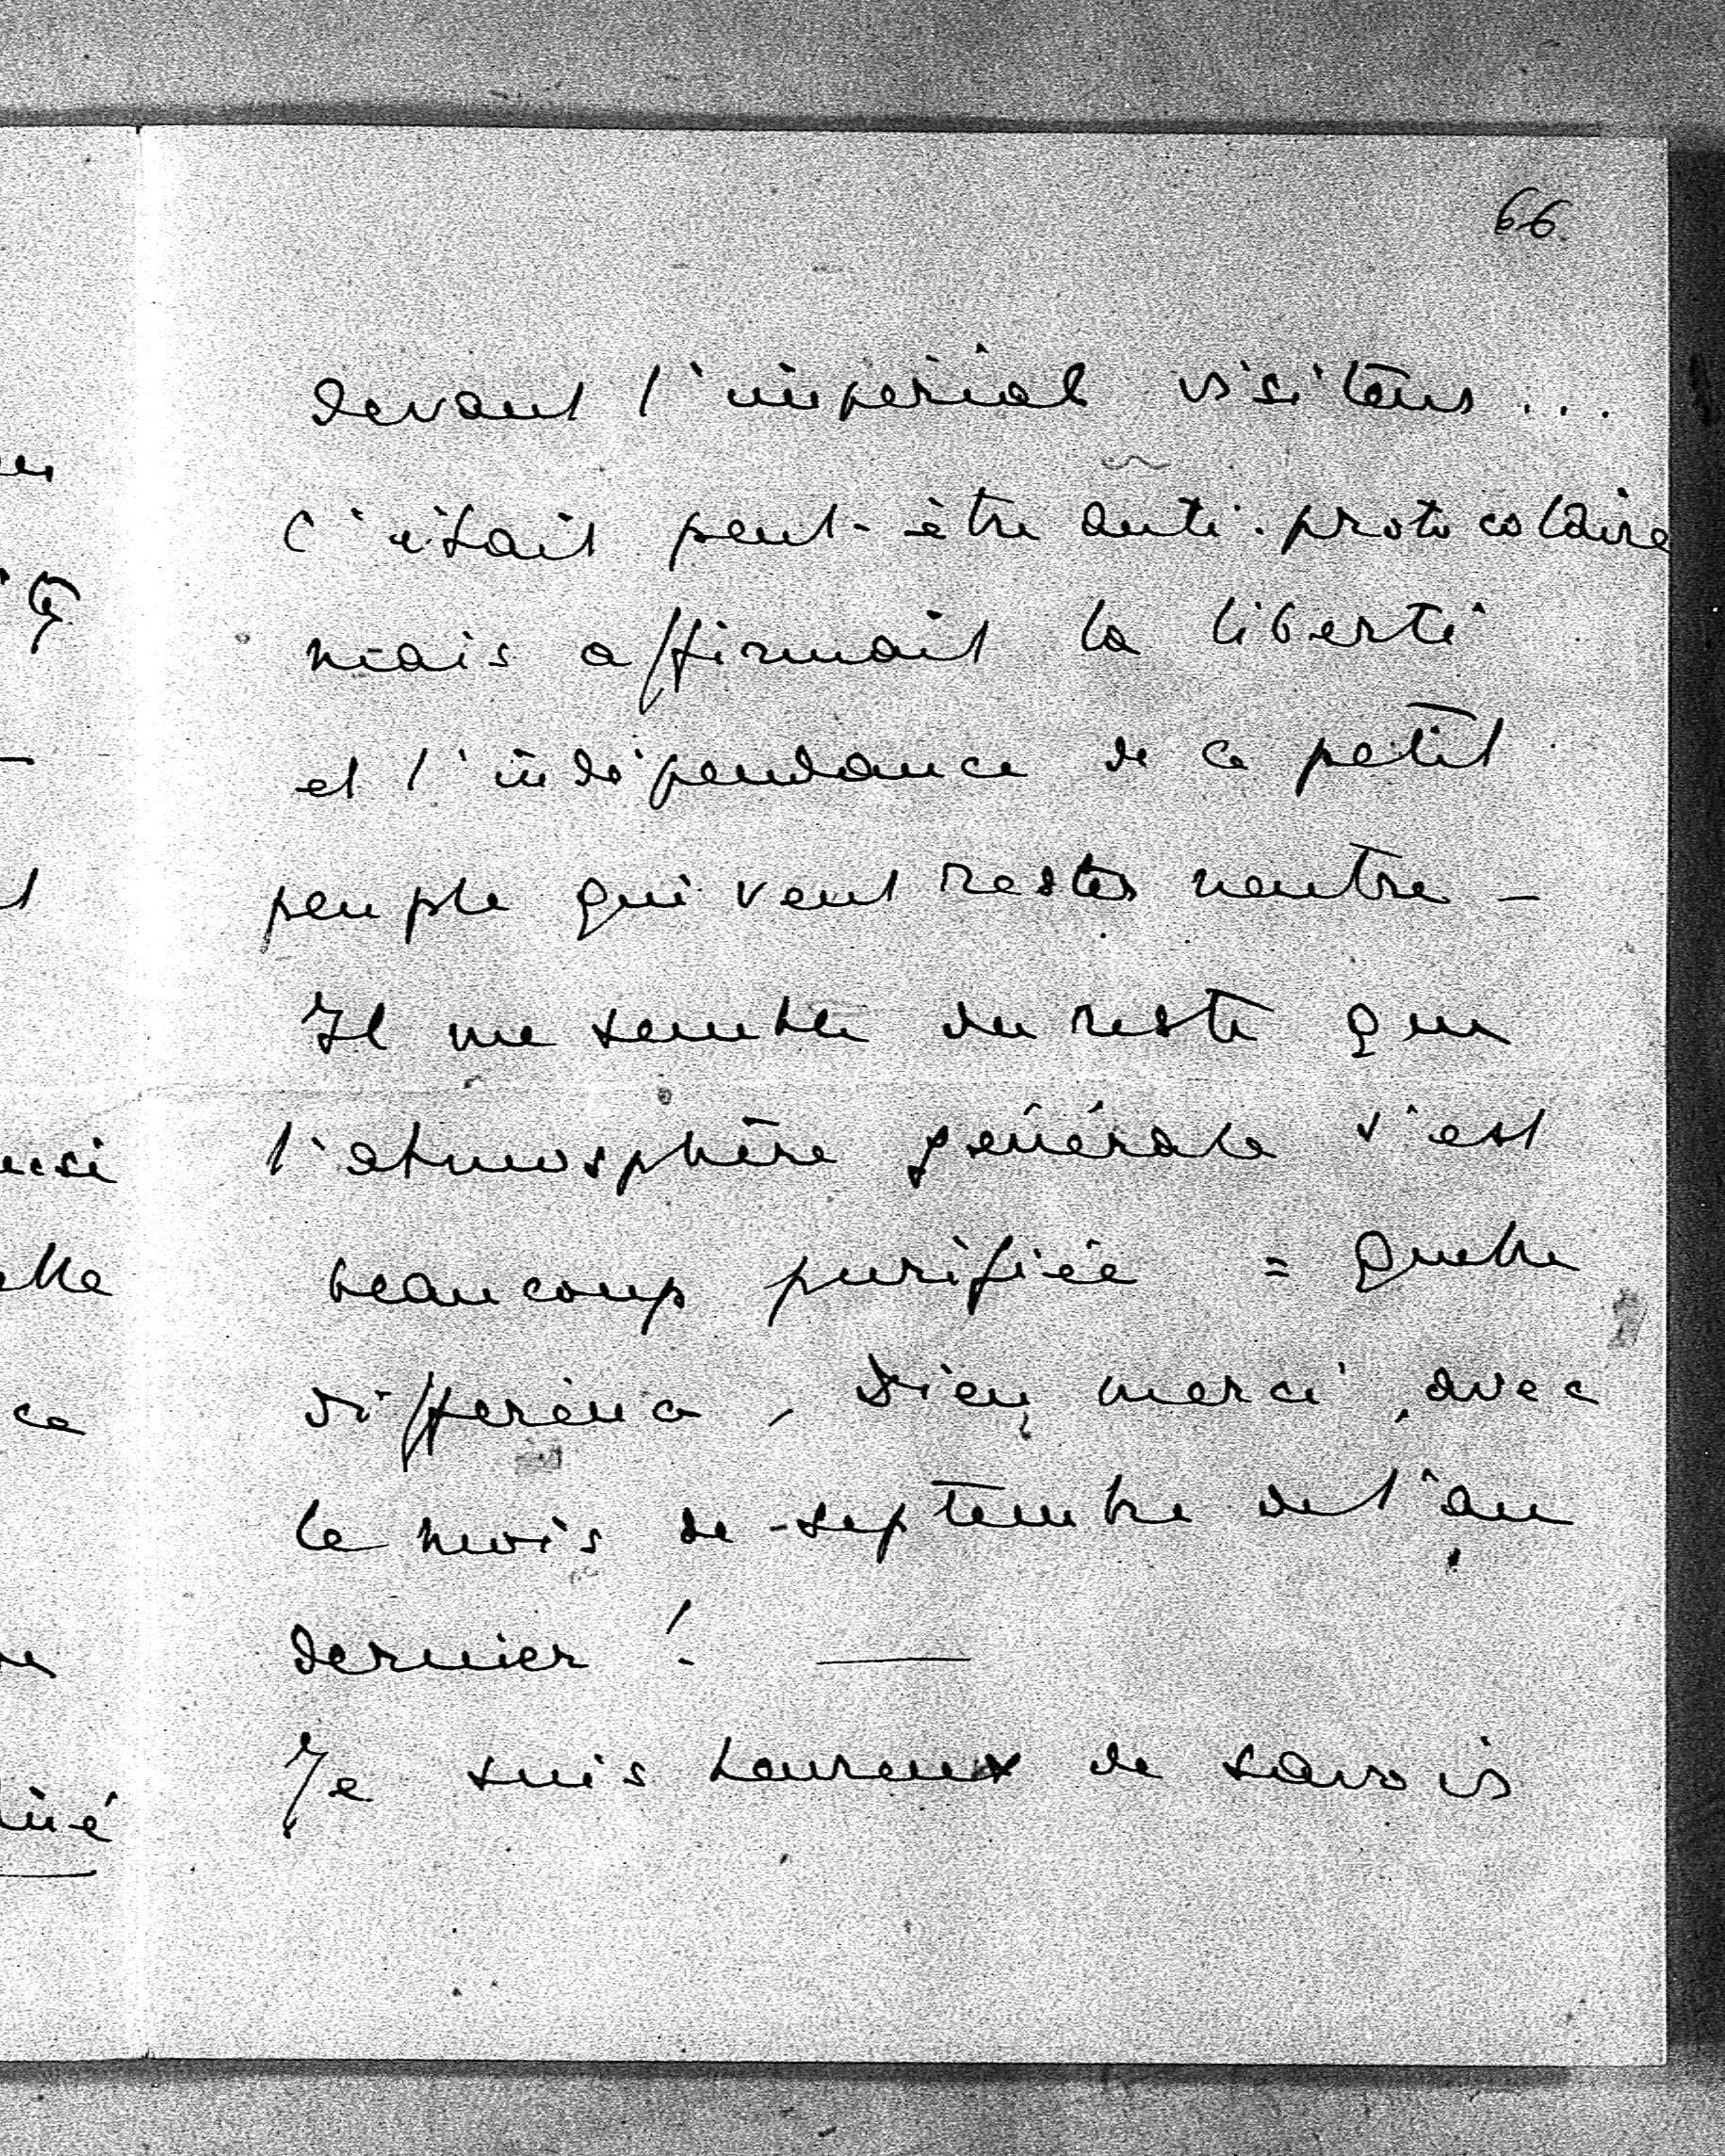 66.
devant l'impérial visiteur...
C'était peut-être anti-protocolaire
mais affirmait la liberté
et l'indépendance de ce petit
peuple qui veut rester neutre —
Il me semble du reste que
l'atmosphère générale s'est
beaucoup purifiée = Quelle
différence, Dieu merci, avec
le mois de septembre de l'an
dernier! —
Je suis heureux de savoir